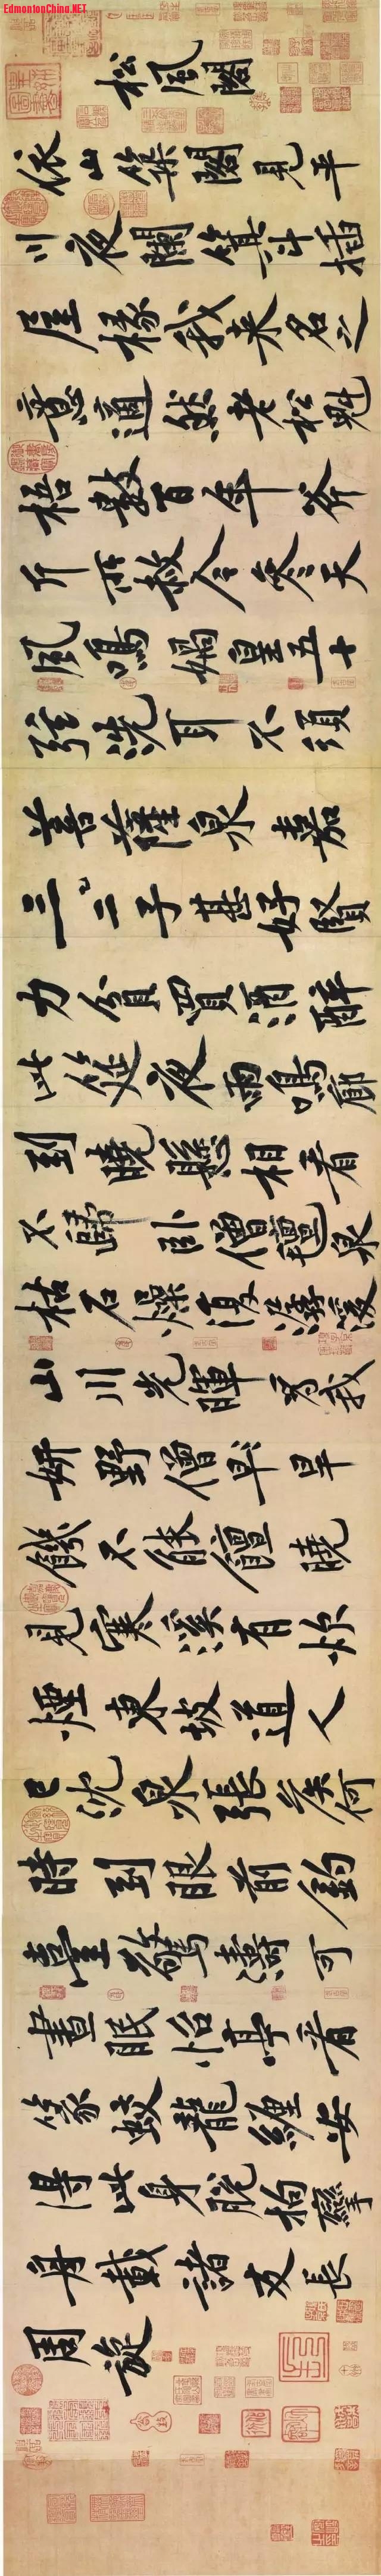 EdmontonChina.NET
松風閣
依山築閣見平
川夜闌箕斗插
屋椽我來名之
意適然老松魁
梧數百年斧
斤所赦今參天
風鳴媧皇五十
弦洗耳不須
菩薩泉嘉
三二子甚好賢
力貧買酒醉
此筵夜雨鳴廊
到曉懸相看
不歸臥僧氈泉
枯石燥復潺湲
山川光暉為我
妍野僧早旱
饑不能饘曉
見寒溪有炊
煙東坡道人
已沈泉張侯何
時到眼前釣
臺驚濤可
晝眠怡亭看
篆蛟龍纏安
得此身脫拘攣
舟載諸友長
周旋